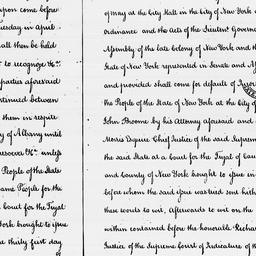 upon come before
Tuesday in April
all then be held
to recognize &c.
parties aforesaid
continued between
them in respite
y of Albany until
resover &c. unless
People of the State
ame People for the
a Court for the Tryal
York brought to issue
e thirty first day
of
of may at the City Hall in the City of New York a
ordinance and the Acts of the Lieutent Governor
Assembly of the late Colony of New York and th
State of New York represented in Senate and As
and provided shall come for default of Jurors
the People of the State of New York at the City of
John Broome by his Attorney aforesaid and
Moris Esquire Chief Justice of the said Supreme
the said State at a Court for the Tryal of Cau
and County of New York bought to issue in
before whom the said issue was tried sent hither
these words to wit, Afterwards to wit on the
within contained before the honorable Richard
Justice of the Supreme Court of Judicature of th